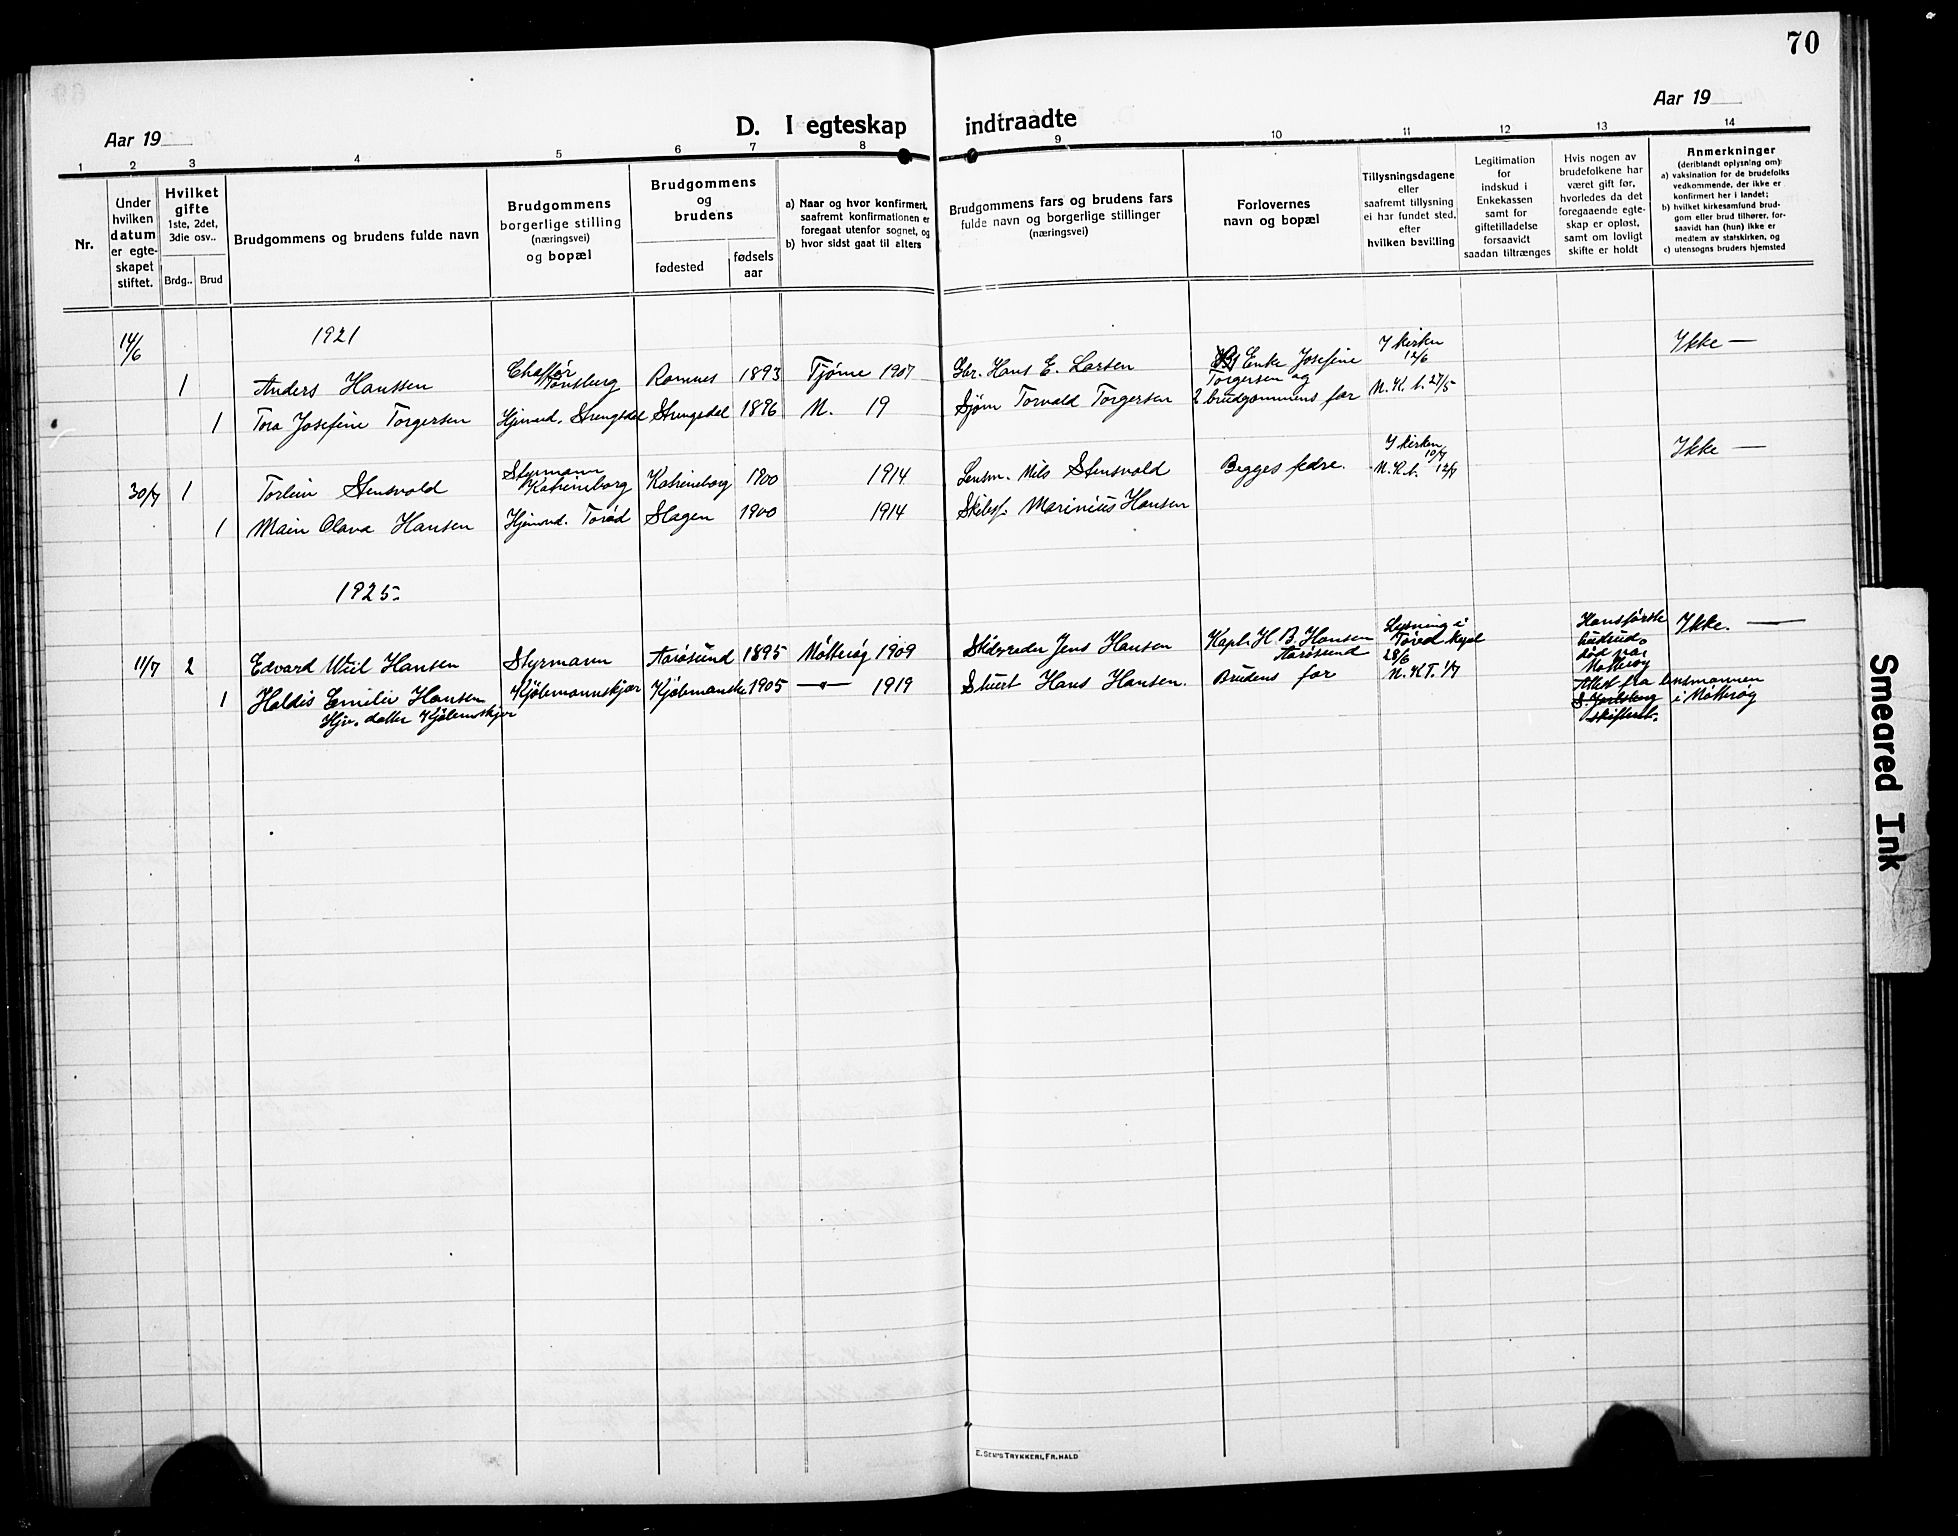 70
Aar 19
D. I egteskap indtraadte
Aar 19
1 2 3 4 5 6 7 8 9 10 11 12 13 14
Nr.
Under
hvilken
datum
er egte-
skapet
stiftet.
Hvilket
gifte
1ste, 2det,
3die osv..
Brdg.. Brud
Brudgommens og brudens fulde navn
Brudgommens
borgerlige stilling
(næringsvei)
og bopæl
Brudgommens
og
brudens
fødested
fødsels
aar
a) Naar og hvor konfirmert,
saafremt konfirmationen er
foregaat utenfor sognet, og
b) hvor sidst gaat til alters
Brudgommens fars og brudens fars
fulde navn og borgerlige stillinger
(næringsvei)
Forlovernes
navn og bopæl
Tillysningsdagene
eller
saafremt tillysning
ei har fundet sted,
efter
hvilken bevilling
Legitimation
for
indskud i
Enkekassen
samt for
giftetilladelse
forsaavidt
saadan tiltrænges
Hvis nogen av
brudefolkene har
været gift før,
hvorledes da det
foregaaende egte-
skap er opløst,
samt om lovligt
skifte er holdt
Anmerkninger
(deriblandt oplysning om):
a) vaksination for de brudefolks
vedkommende, der ikke er
konfirmert her i landet;
b) hvilket kirkesamfund brud-
gom eller brud tilhører, for-
saavidt han (hun) ikke er
medlem av statskirken, og
c) utensogns bruders hjemsted
1921
14/6
1 Anders Hanssen
Chaffør
Tønsberg
Ramnes 1893 Tjøme 1907
Gbr. Hans E. Larsen
Enke Josefine
Torgersen og
I kirken
12/6
Ikke —
1 Tora Josefine Torgersen
Hjemmed. Strengsdal Strengsdal 1896 N. 19
Sjøm Torvald Torgersen
2 brudgommens far
N. K. t. 27/5
30/7 1 Torlein Stensvold
Styrmann
Katrineborg
Katrineborg 1900 1914
Lensm. Nils Stensvold
Begges fedre.
I kirken
10/7
N. K. t. 12/7
Ikke —
1 Main Olava Hansen
Hjemmed. Torød Slagen 1900 1914
Skibsf. Marinius Hansen
1925.
11/7 2 Edvard Wiil Hansen
Styrmann Aarøsund 1895 Nøtterøy 1909
Skibsreder Jens Hansen
Kapt. H. B. Hansen
Aarøsund
Lysning i
Torød kapel
28/6
N. K. T. 1/7
Hans første
hustru
død paa
Nøtterøy
Attest fra lensmannen
i Nøtterøy
S. Jarlsberg
skifterett.
Ikke. —
1 Haldis Emilie Hansen
Hjv. datter Kjøbmandskjær
Kjøbmannskjær Kjøbmanskj 1905 —"— 1919
Stuert Hans Hansen.
Brudens far
E. SEM'S TRYKKERI, FR.HALD
Smeared Ink